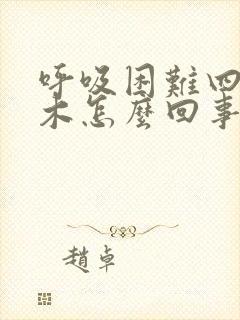 呼吸困難四
木怎麼回事
趙卓